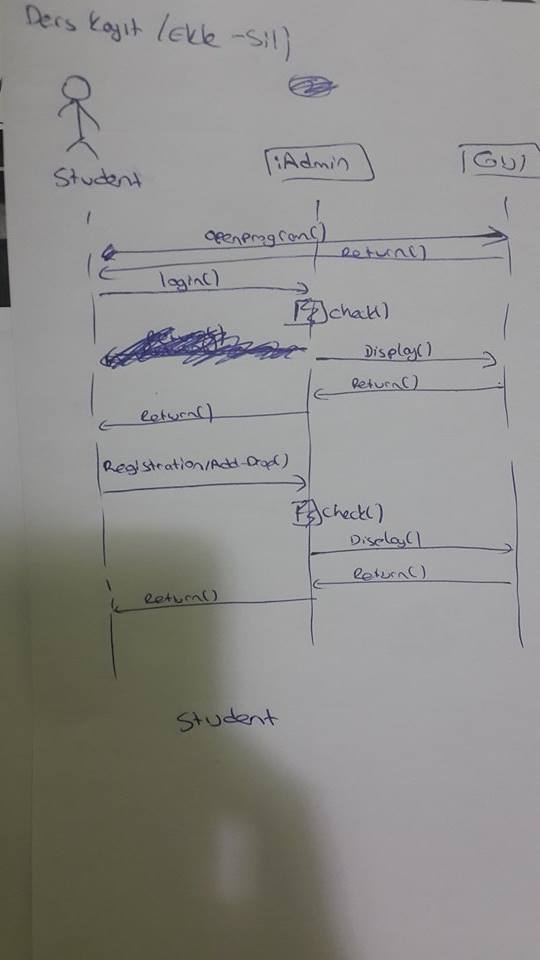 Ders Kayıt (Ekle-Sil)
Student
:Admin
openprogram()
Return()
login()
check()
Display()
Return()
Return()
Registration/Add-Drop()
check()
Display()
Return()
Return()
Student